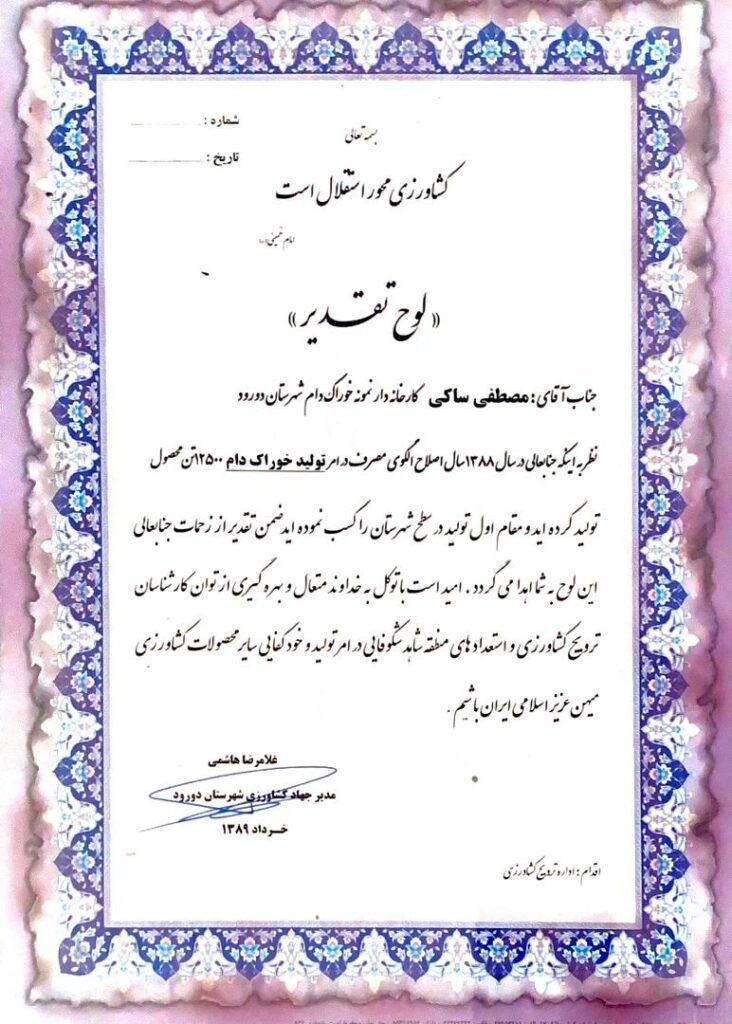 شماره : ................
بسمه تعالی
تاریخ : ................
کشاورزی محور استقلال است
امام خمینی
« لوح تقدیر »
جناب آقای : مصطفی ساکی کارخانه دار نمونه خوراک دام شهرستان دورود
نظر به اینکه جنابعالی در سال ۱۳۸۸ سال اصلاح الگوی مصرف در امر تولید خوراک دام ۱۲۵۰۰ تن محصول
تولید کرده اید و مقام اول تولید در سطح شهرستان را کسب نموده اید ضمن تقدیر از زحمات جنابعالی
این لوح به شما اهدا می گردد . امید است با توکل به خداوند متعال و بهره گیری از توان کارشناسان
ترویج کشاورزی و استعداد های منطقه شاهد شکوفایی در امر تولید و خودکفایی سایر محصولات کشاورزی
میهن عزیز اسلامی ایران باشیم .
غلامرضا هاشمی
مدیر جهاد کشاورزی شهرستان دورود
خرداد ۱۳۸۹
اقدام : اداره ترویج کشاورزی